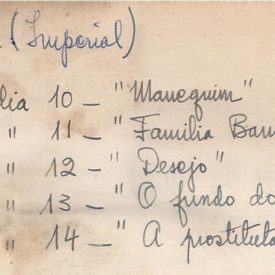 (Imperial)
dia 10 – "Manequim"
" 11 – "Familia Bar
" 12 – "Desejo"
" 13 – "O fundo do
" 14 – "A prostituta